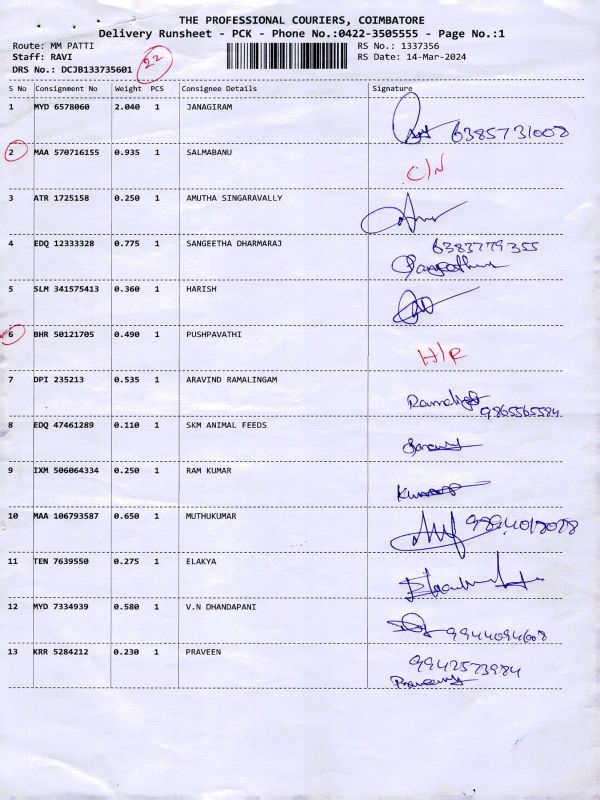 THE PROFESSIONAL COURIERS, COIMBATORE
Delivery Runsheet - PCK - Phone No.:0422-3505555 - Page No.:1
Route: MM PATTI RS No.: 1337356
Staff: RAVI 22 RS Date: 14-Mar-2024
DRS No.: DCJB133735601
S No Consignment No Weight PCS Consignee Details Signature
1 MYD 6578060 2.040 1 JANAGIRAM
6385731008
2 MAA 570716155 0.935 1 SALMABANU
C/N
3 ATR 1725158 0.250 1 AMUTHA SINGARAVALLY
4 EDQ 12333328 0.775 1 SANGEETHA DHARMARAJ 6383779355
5 SLM 341575413 0.360 1 HARISH
6 BHR 50121705 0.490 1 PUSHPAVATHI
H/R
7 DPI 235213 0.535 1 ARAVIND RAMALINGAM
9865565584
8 EDQ 47461289 0.110 1 SKM ANIMAL FEEDS
9 IXM 506064334 0.250 1 RAM KUMAR
10 MAA 106793587 0.650 1 MUTHUKUMAR
11 TEN 7639550 0.275 1 ELAKYA
12 MYD 7334939 0.580 1 V.N DHANDAPANI
9944094608
13 KRR 5284212 0.230 1 PRAVEEN
9942573984